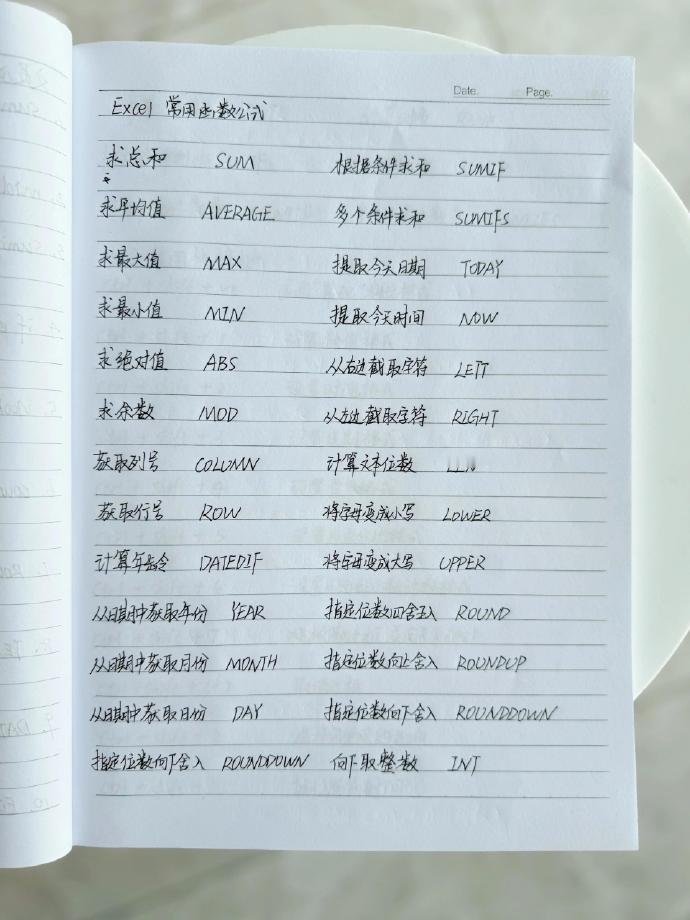 Date. Page.
Excel 常用函数公式
求总和 SUM 根据条件求和 SUMIF
求平均值 AVERAGE 多个条件求和 SUMIFS
求最大值 MAX 提取今天日期 TODAY
求最小值 MIN 提取今天时间 NOW
求绝对值 ABS 从右边截取字符 LEFT
求余数 MOD 从左边截取字符 RIGHT
获取列号 COLUMN 计算文本位数
获取行号 ROW 将字母变成小写 LOWER
计算年龄 DATEDIF 将字母变成大写 UPPER
从日期中获取年份 YEAR 指定位数四舍五入 ROUND
从日期中获取月份 MONTH 指定位数向上舍入 ROUNDUP
从日期中获取日份 DAY 指定位数向下舍入 ROUNDDOWN
指定位数向下舍入 ROUNDDOWN 向下取整数 INT